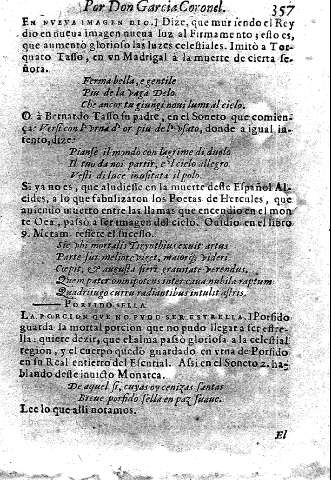 Por Don Garcia Coronel. 357
EN NUEVA IMAGEN DIO.] Dize, que muriendo el Rey
dio en nueua imagen nueua luz al Firmamento; esto es,
que aumentò glorioso las luzes celestiales. Imitò a Tor-
quato Tasso, en vn Madrigal à la muerte de cierta se-
ñora.
Ferma bella, e gentile
Piu de la vaga Delo.
Che ancor tu giungi noui lumi al cielo.
O à Bernardo Tasso su padre, en el Soneto que comien-
ça: Versi con l'vrna d'or piu de l'vsato, donde a igual in-
tento, dize:
Pianse il mondo con lagrime di duolo
Il tuo da noi partir, e'l cielo allegro
Vesti di luce inusitata il polo.
Si ya no es, que aludiesse en la muerte deste Español Al-
cides, a lo que fabulizaron los Poetas de Hercules, que
auiendo muerto entre las llamas que encendio en el mon
te Oeta, passò a ser imagen del cielo. Ouidio en el libro
9. Metam. refiere el sucesso.
Sic vbi mortales Tirynthius exuit artus
Parte sui meliore viget, maiorq; videri
Cœpit, & augusta fieri grauitate verendus,
Quem pater omnipotens inter caua nubila raptum
Quadriiugo curru radiantibus intulit astris.
PORFIDO SELLA
LA PORCION QUE NO PUDO SER ESTRELLA.] Porfido
guarda la mortal porcion que no pudo llegar a ser estre-
lla: quiere dezir, que el alma passò gloriosa a la celestial
region, y el cuerpo quedò guardado en vrna de Porfido
en su Real entierro del Escurial. Assi en el Soneto 2. ha-
blando deste inuicto Monarca.
De aquel si, cuyas oy cenizas santas
Breue porfido sella en paz suaue.
Lee lo que alli notamos.
El